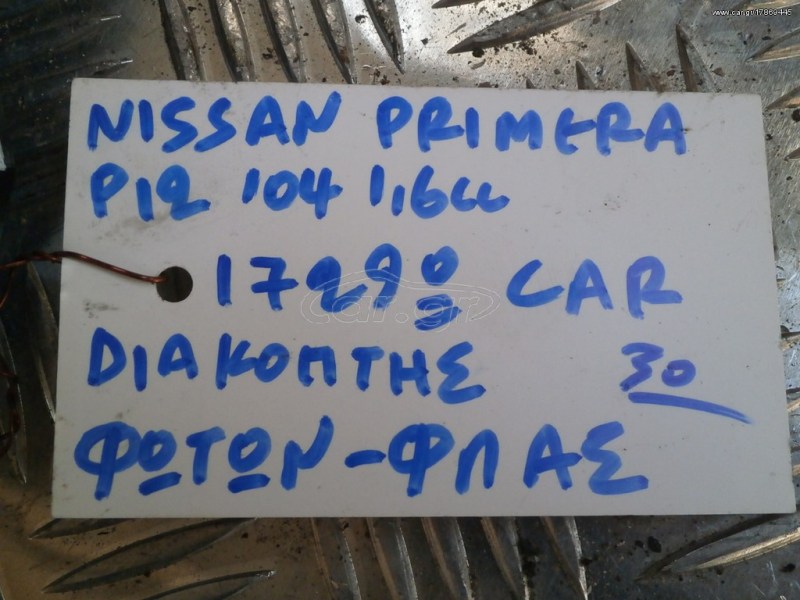 www.car.gr/17860445
NISSAN PRIMERA
P12 104 1,6cc
17290 CAR
ΔΙΑΚΟΠΤΗΣ 30
ΦΩΤΩΝ-ΦΛΑΣ
car.gr